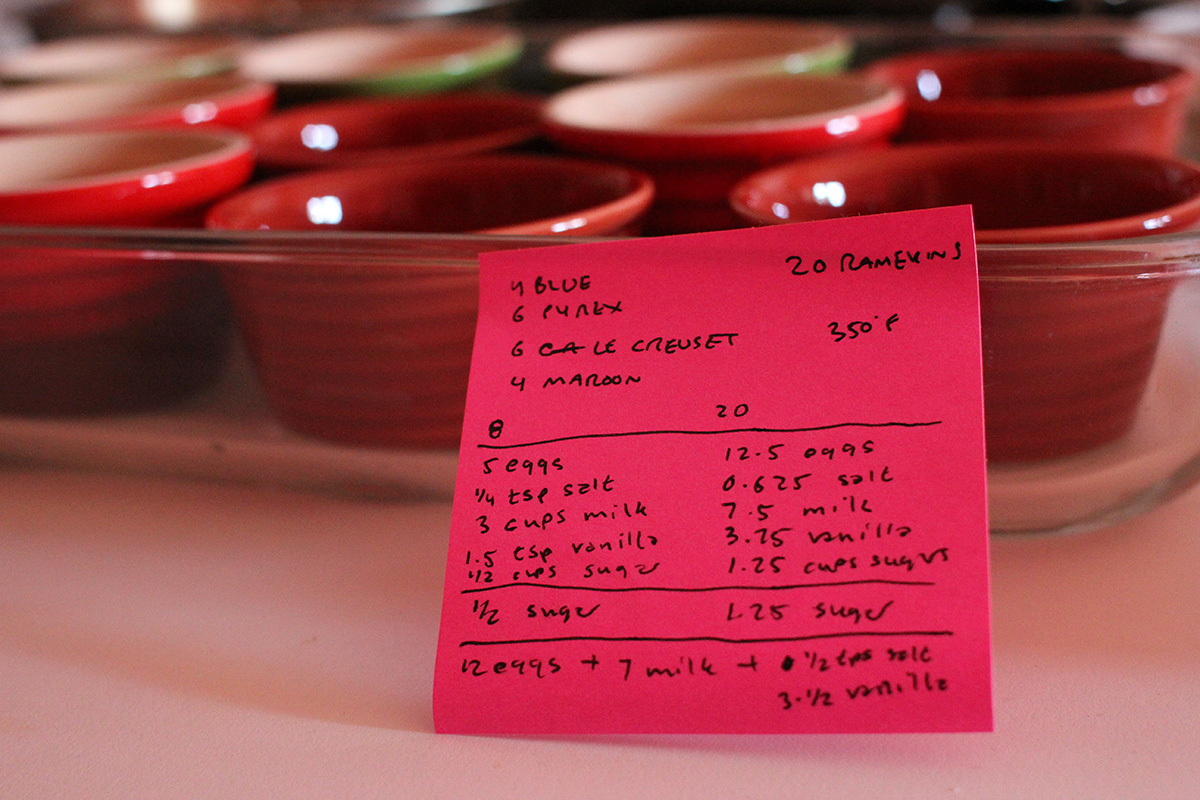 4 BLUE
20 RAMEKINS
6 PYREX
350°F
6 LE CREUSET
4 MAROON
8 20
5 eggs 12.5 eggs
1/4 tsp salt 0.625 salt
3 cups milk 7.5 milk
1.5 tsp vanilla 3.75 vanilla
1/2 cups sugar 1.25 cups sugar
1/2 sugar 1.25 sugar
12 eggs + 7 milk + 1/2 tps salt
3-1/2 vanilla